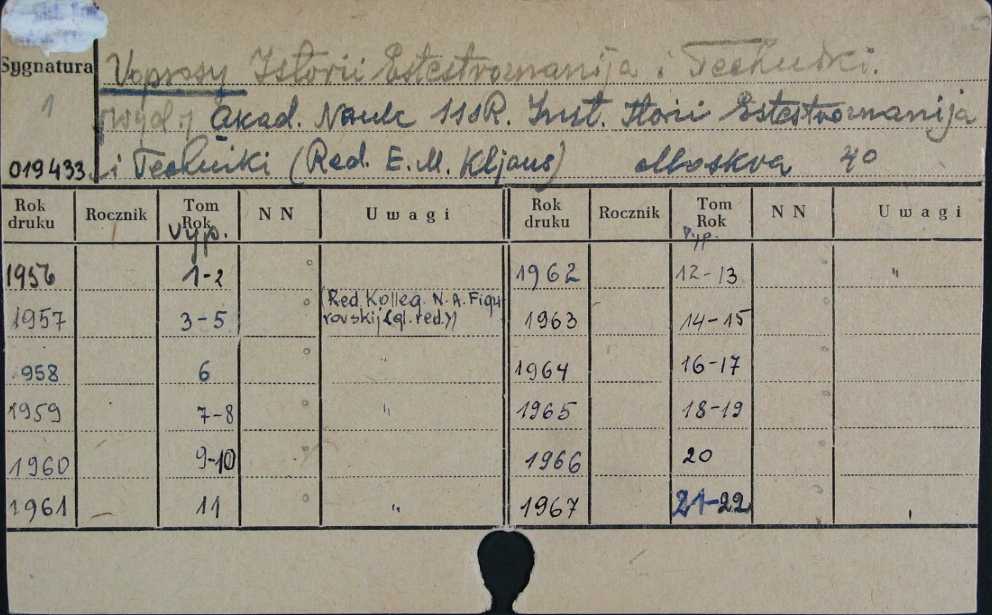 Sygnatura
1
019433
Voprosy Istorii Estestvoznanija i Techniki.
[wyd.] Akad. Nauk SSSR. Inst. Istorii Estestvoznanija
i Techniki (Red. E. M. Kljaus) Moskva 40
Rok druku Rocznik Tom Rok NN Uwagi Rok druku Rocznik Tom Rok NN Uwagi
Vyp. Vyp.
1956 1-2 1962 12-13 "
1957 3-5 (Red. Kolleg. N. A. Figurovskij (gl. red.)) 1963 14-15
1958 6 " 1964 16-17
1959 7-8 " 1965 18-19
1960 9-10 1966 20
1961 11 " 1967 21-22